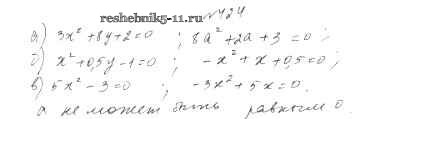 reshebnik5-11.ru №424
а) 3x² + 8y + 2 = 0 ; 8a² + 2a + 3 = 0 ;
б) x² + 0,5y - 1 = 0 ; -x² + x + 0,5 = 0 ;
в) 5x² - 3 = 0 ; -3x² + 5x = 0.
а не может быть равным 0.